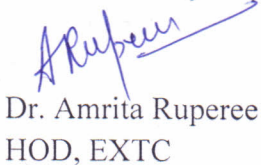 ARuperee
Dr. Amrita Ruperee
HOD, EXTC